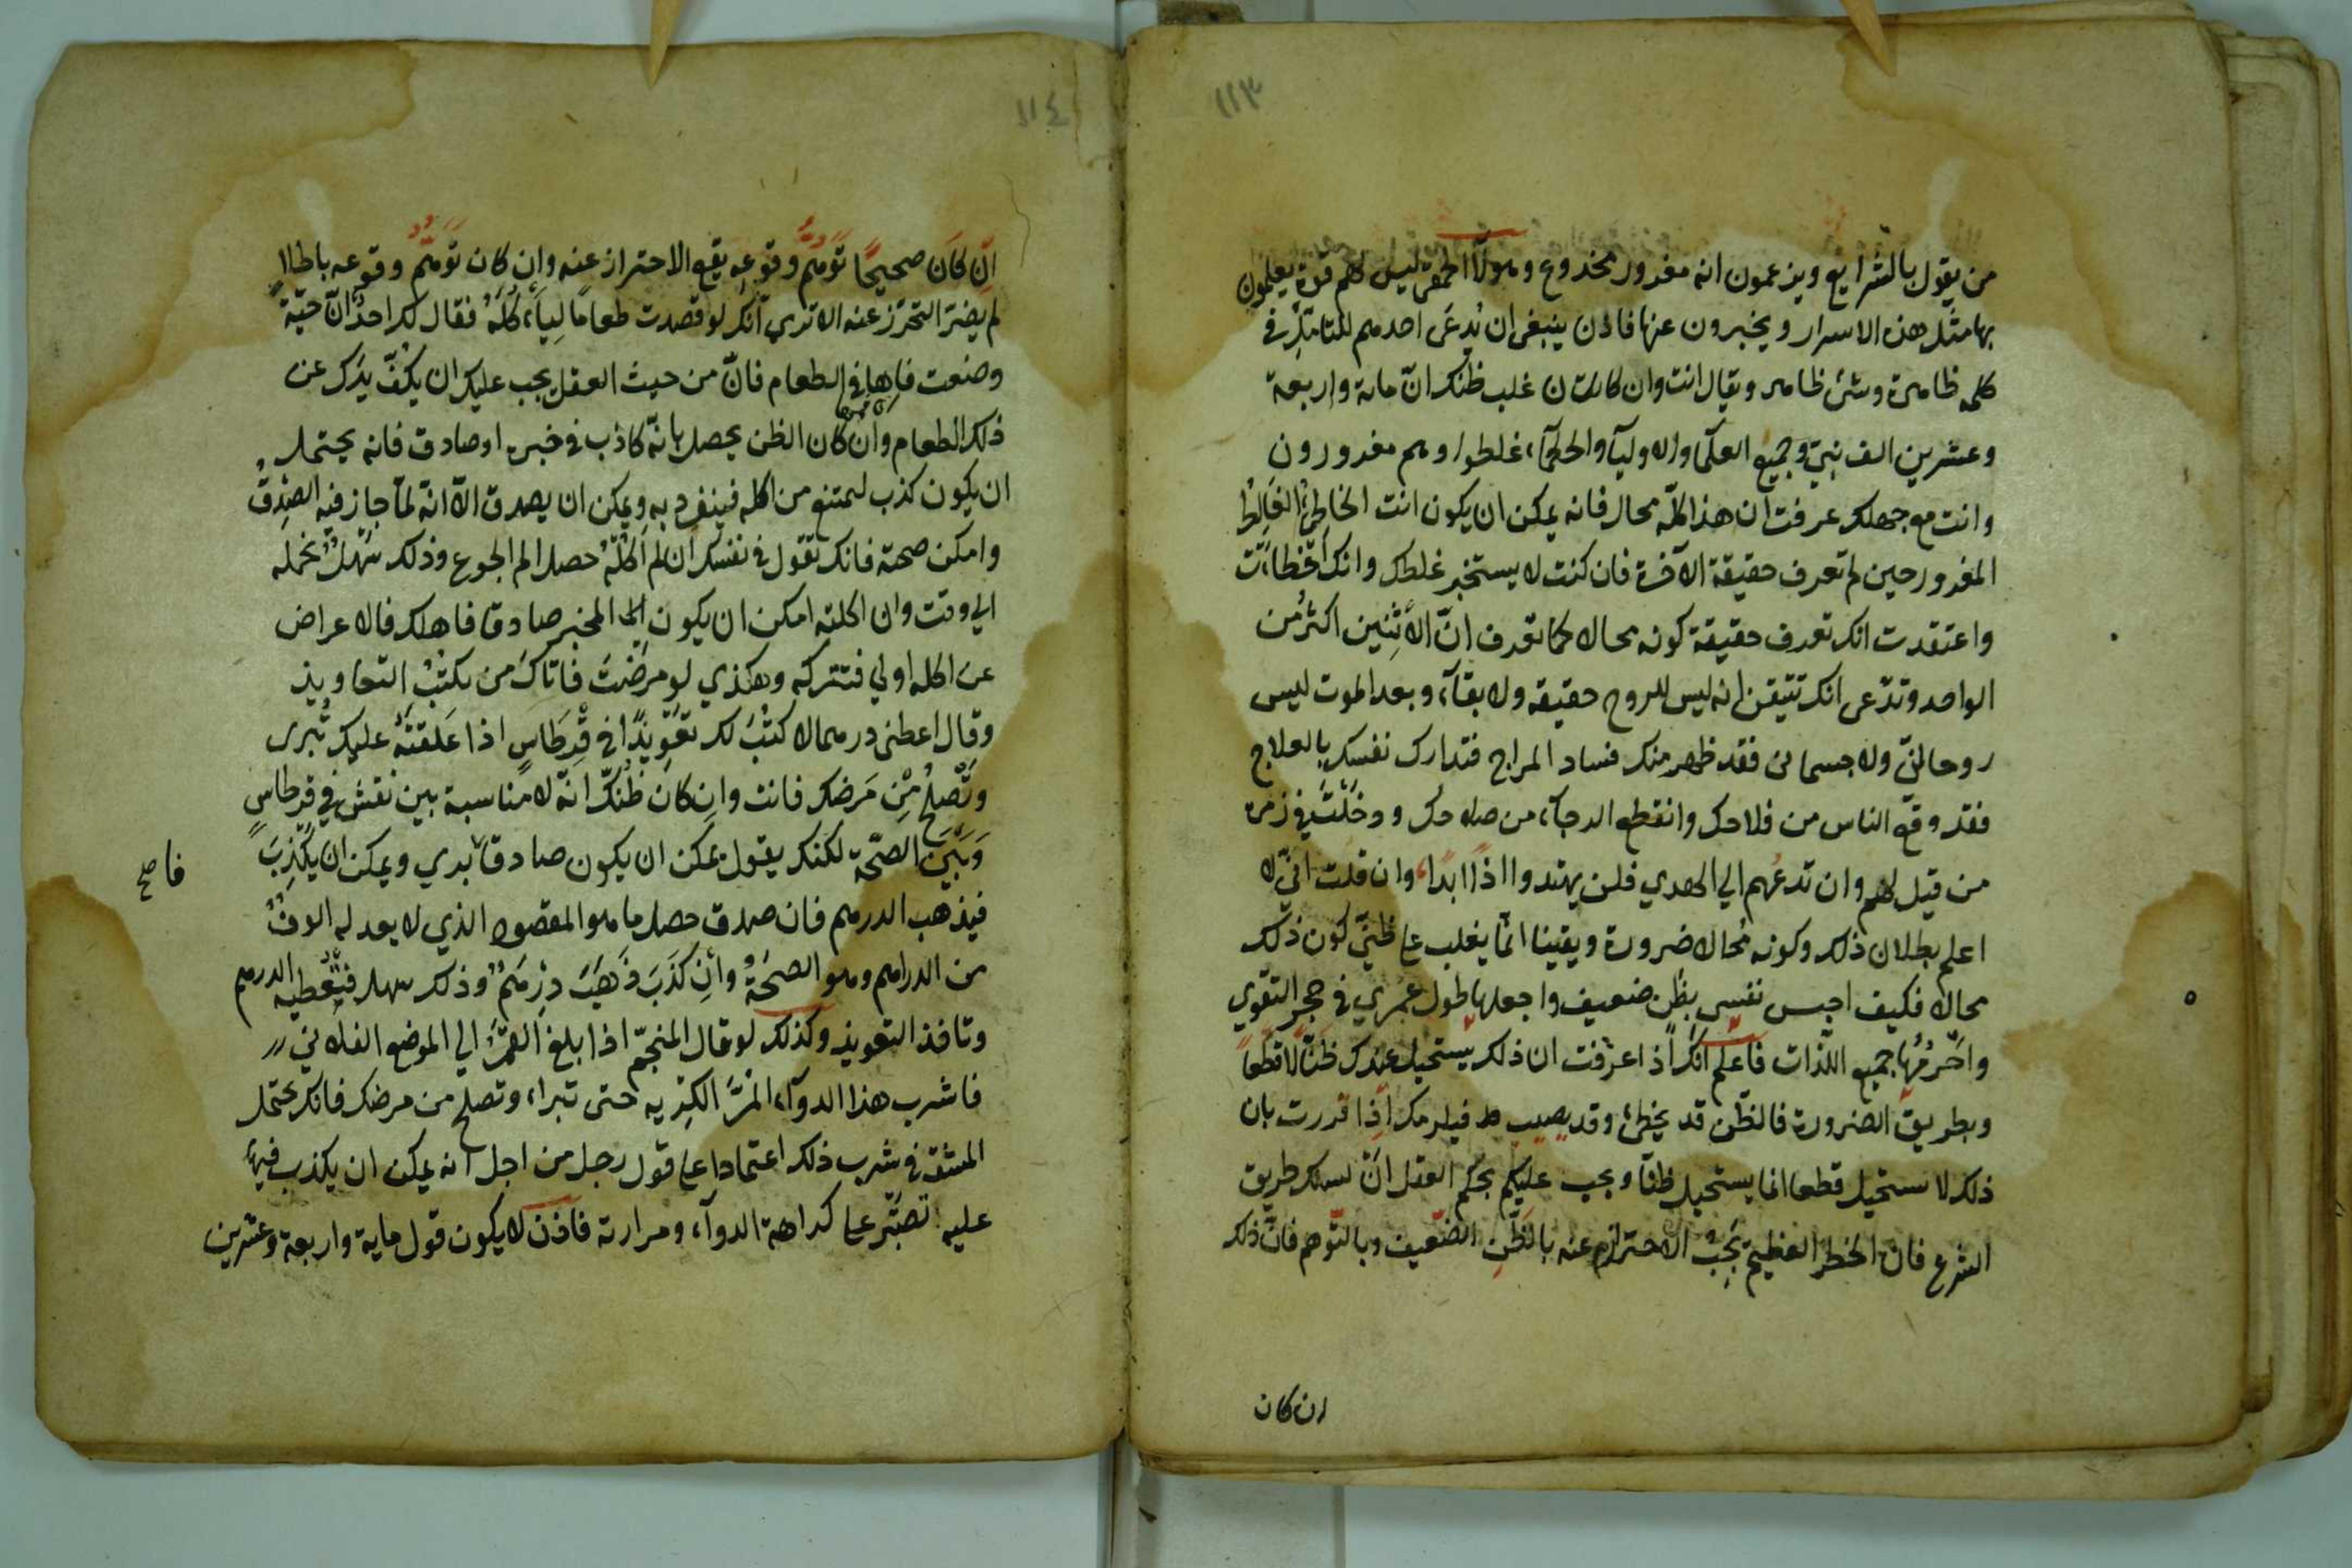 ١١٣
من يقول بالشرايع ويزعمون انه مغرور مخدوع وهولآء الحمقى ليس لهم قوة يعلمون
بها مثل هذه الاسرار ويخبرون عنها فاذن ينبغى ان يُدعَى احدهم للتامّل في
كلمه ظاهرة وشئ ظاهر ويقال انت وان كان غلب ظنك انّ ماىة واربعة
وعشرين الف نبيّ وجميع العلمآ والاوليآ والحكمآء غلطوا وهم مغرورون
وانت مع جهلك عرفت ان هذا كلّه محال فانه يمكن ان يكون انت الخاطِئُ الغَالِطُ
المغرور حين لم تعرف حقيقة الآخرة فان كنت لا يستخبر غلطك وانك اخطاءَت
واعتقدت انك تعرف حقيقة كونه محالا كما تعرف انّ الأثنِين اكثرُ من
الواحد وتدّعى انك تتيقن انه ليس للروح حقيقه ولا بقآء وبعد الموت ليس
روحانيّ ولا جسمانى فقد ظهر منك فساد المزاج فتدارك نفسك بالعلاج
فقد وقع الناس من فلاحك وانقطع الرجآء من صلاحك ودخَلْتَ في زمرة
من قيل لهم وان تدعُهم الي الهدي فلن يهتدوا اذًا ابدًا وان قلت انّي لا
اعلم بطلان ذلك وكونه مُحالا ضرورة ويقينا انّما يغلب على ظنّي كون ذلك
محالا فكيف احبس نفسي بظن ضعيف واجعلها طول عُمري في حجر التقوي
واحَرّمُها جميع اللّذات فاعلم انك اذا عرفت ان ذلك يستحيل عندك ظنًّا لا قطعاً
وبطريق الضرورة فالظّن قد يخطئ وقد يصيب فيلزمك اذا قررت بان
ذلك لا ستحيل قطعا انما يستحيل ظنّاً ويجب عليكم بحكم العقل انّ تسلك طريق
الشرع فانّ الخطر العظيم يَجبُ الاحتراز عنه بالظّنِ الضّعيف وبالتّوهم فانّ ذلك
ان كان
١١٤
انّ كانَ صحيحًا تَوَهّمُ وقوعه يقع الاحتراز عنه وإن كان تَوَهّمُ وقوعه باطلاً
لم يضرّ التحرّز عنه الا تري انّك لو قصدت طعامًا لِيَأكُلَهُ فقال لك احدٌ انّ حيّة
وضعت فاها في الطعام فانّ من حيث العقل يجب عليك ان يكُفّ يدَك عن
ذلك الطعام وان كان الظن يحصل بانّه كاذب في خبره او صادق فانه يحتمل
ان يكون كذب ليمتنع من اكله فينفرد به ويمكن ان يصدق الّا انّه لمّا جاز فيه الصِّدقُ
وامكن صحته فانك تقول في نفسك ان لم اكُلْهُ حصل الم الجوع وذلك سَهْلٌ تحمله
الي وقت وان اكلته امكن ان يكون المخبر صادقا فاهلك فالاعراض
عن اكله اولي فتتركه وهكذي لو مرَضْتَ فاتاكَ من يكتُبْ التعاويذ
وقال اعطنى درهما لاكتُبَ لك تعَوِيذًا في قِرطَاسٍ اذا عَلقتَهُ عليك تُبرى
وتَصْلحُ مْن مَرَضك فانت وان كان ظنُّك انّه لا مناسبة بين نقش في قرطاسٍ
وَبَيْنَ الصّحّة لكنك يقول يمكن ان يكون صادقا بدي ويمكن ان يَكْذِبَ
فا صح
فيذهب الدرهم فان صدق حصل ما هو المقصود الذي لا يعدله الوفٌ
من الدراهم وهو الصحّةُ وإن كَذَبَ ذَهَبَ دِرْهَمٌ وذلك سهل فتُعْطيه الدرهم
وتاخذ التعويذ وكذلك لو قال المنجّم اذا بلغ القمَرُ الي الموضع الفلانيّ
فاشرب هذا الدوآء المُرَّ الكريه حتى تبراء وتصلح من مرضك فانك يحتمل
المشقّة في شرب ذلك اعتمادا على قول رجل من اجل انه يمكن ان يكذب فيها
عليه تصبّر على كراهة الدوآء ومرارته فاذن لا يكون قول ماية واربعة وعشرين